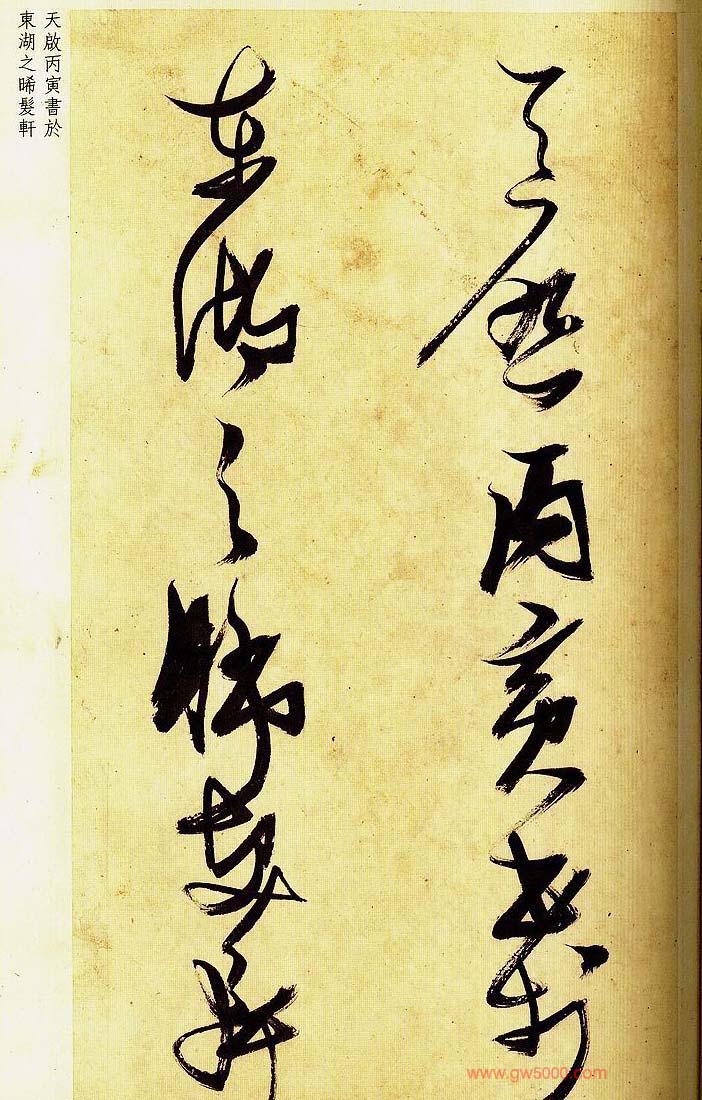 天啟丙寅書於
東湖之晞髮軒
天啟丙寅書於
東湖之晞髮軒
www.gw5000.com